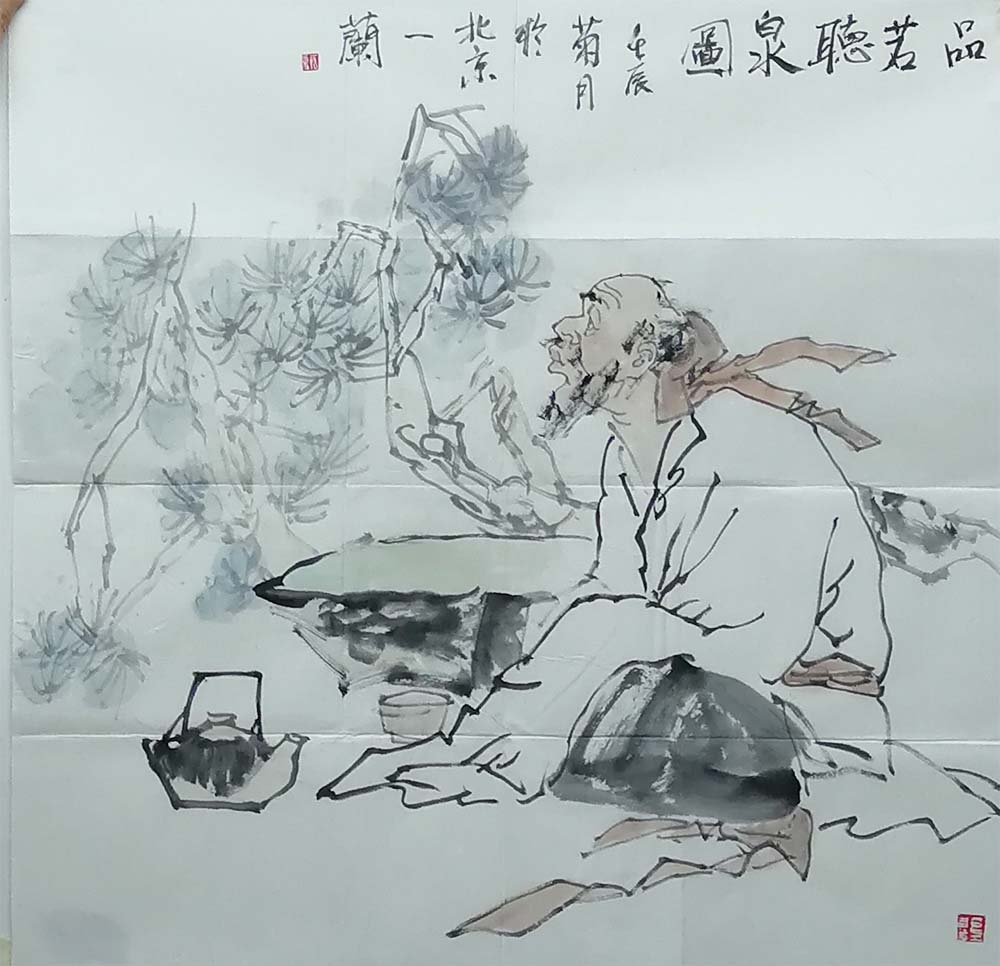 品茗聽泉圖
壬辰
菊月
於
北京
一
蘭